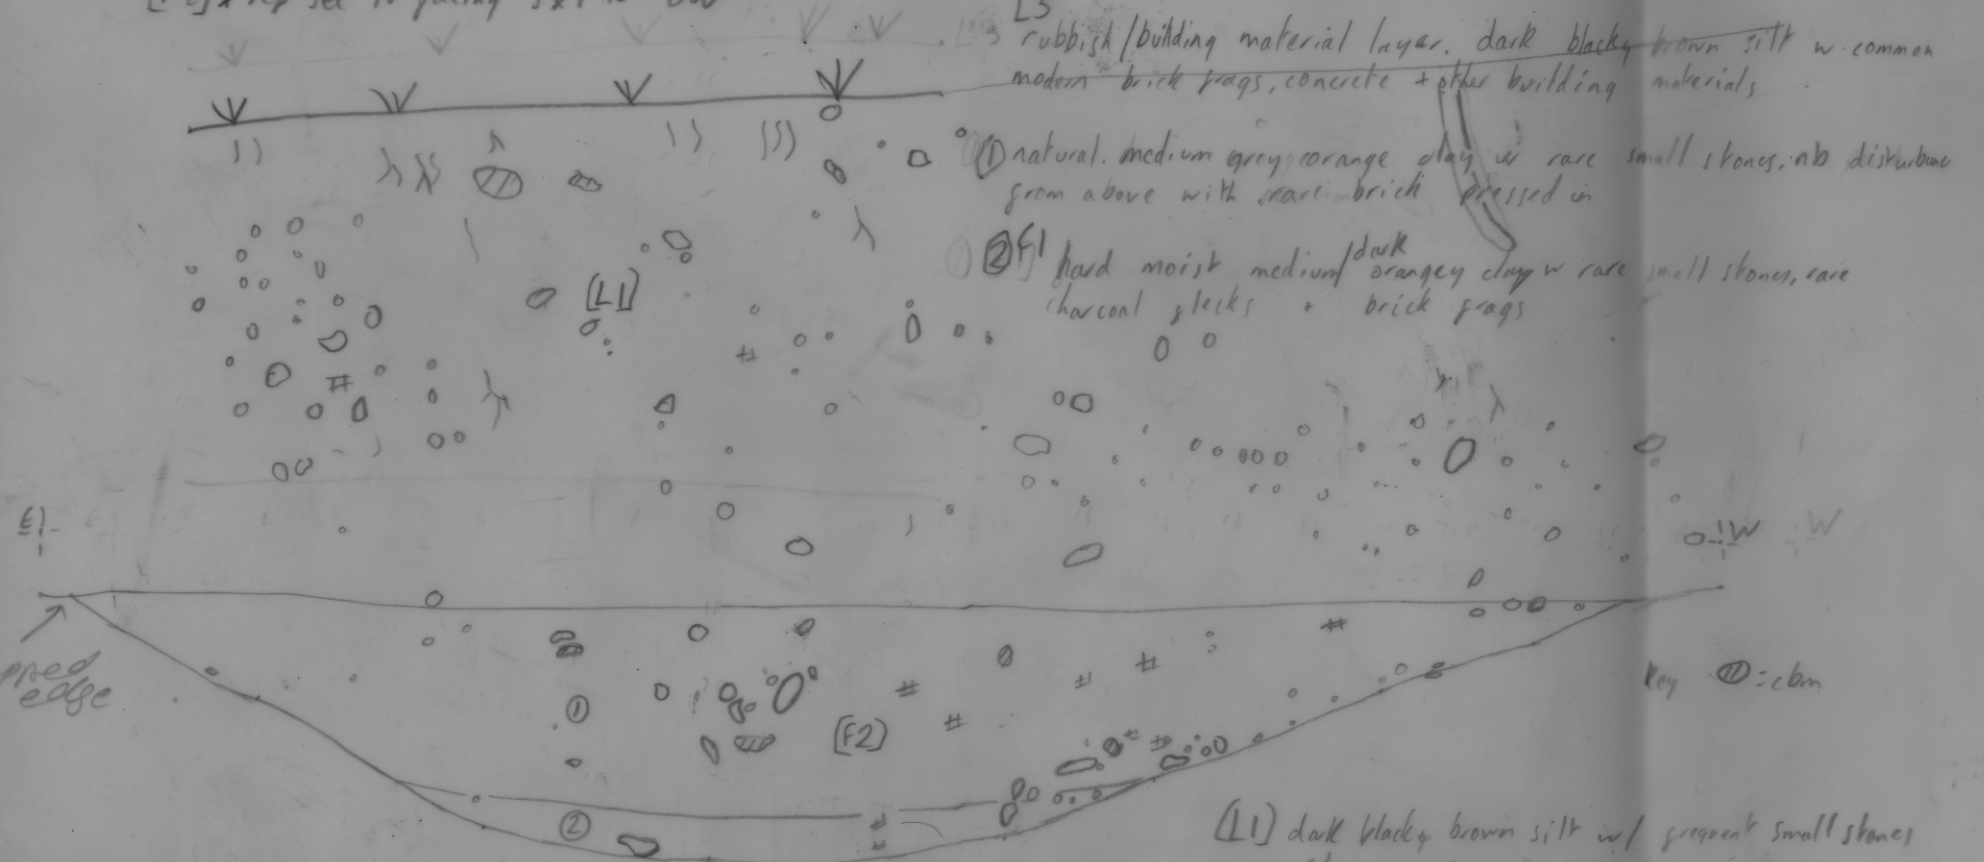 L3
rubbish/building material layer. dark blacky brown silt w. common
modern brick frags, concrete + other building materials
① natural. medium grey orange clay w rare small stones. nb disturbance
from above with rare brick pressed in
② F1 hard moist medium/dark orangey clay w rare small stones, rare
charcoal flecks + brick frags
[L1]
E
W W
edge
Key = cbm
①
[F2]
②
[L1] dark blacky brown silt w/ frequent small stones